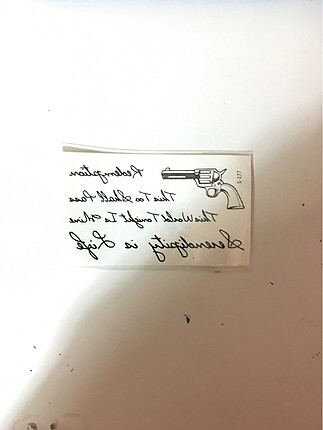 Redemption
This Too Shall Pass
This World Tonight Is Mine
Serendipity is Life
S-177